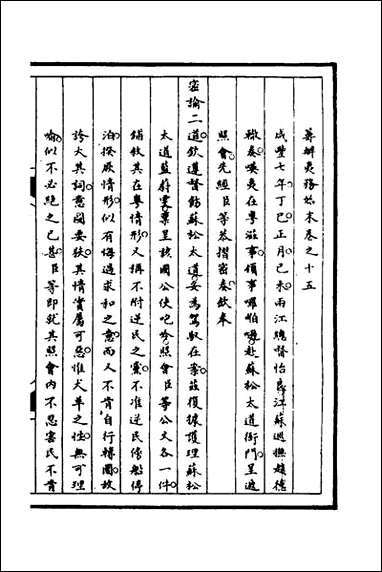 籌辦夷務始末卷之十五
咸豐七年丁巳正月己未兩江總督怡良江蘇巡撫趙德
轍奏嘆夷在粵滋事領事囉伯㖫赴蘇松太道衙門呈遞
照會先經臣等恭摺密奏欽奉
密諭二道欽遵督飭蘇松太道妥為駕馭在案茲復據護理蘇松
太道藍蔚雯稟呈該國公使咆呤照會臣等公文各一件
鋪敘其在粵情形又稱不附逆民之黨不准逆民傍船停
泊揆厥情形似有悔過求和之意而又不肯自行轉圜故
誇大其詞意圖要挾其情實屬可惡惟犬羊之性無可理
喻似不必絕之已甚臣等即就其照會內不忍害民不肯